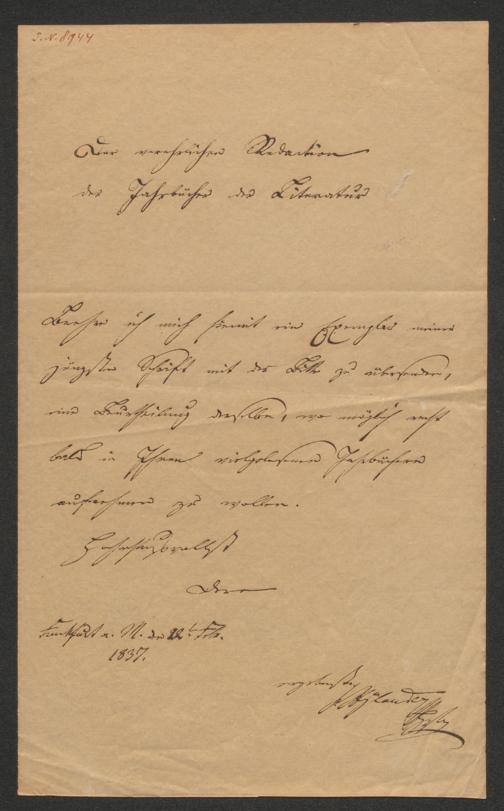 I.N. 8944
Der verehrlichen Redaction
der Jahrbücher der Literatur
Beehre ich mich hiemit ein Exemplar meiner
jüngsten Schrift mit der Bitte zu übersenden,
eine Beurtheilung derselben, wo möglich recht
bald in Ihren vielgelesenen Jahrbüchern
aufnehmen zu wollen.
Hochachtungsvollst
Dero
Frankfurt a. M. den 12t Feb.
1837.
ergebenster
Xylander